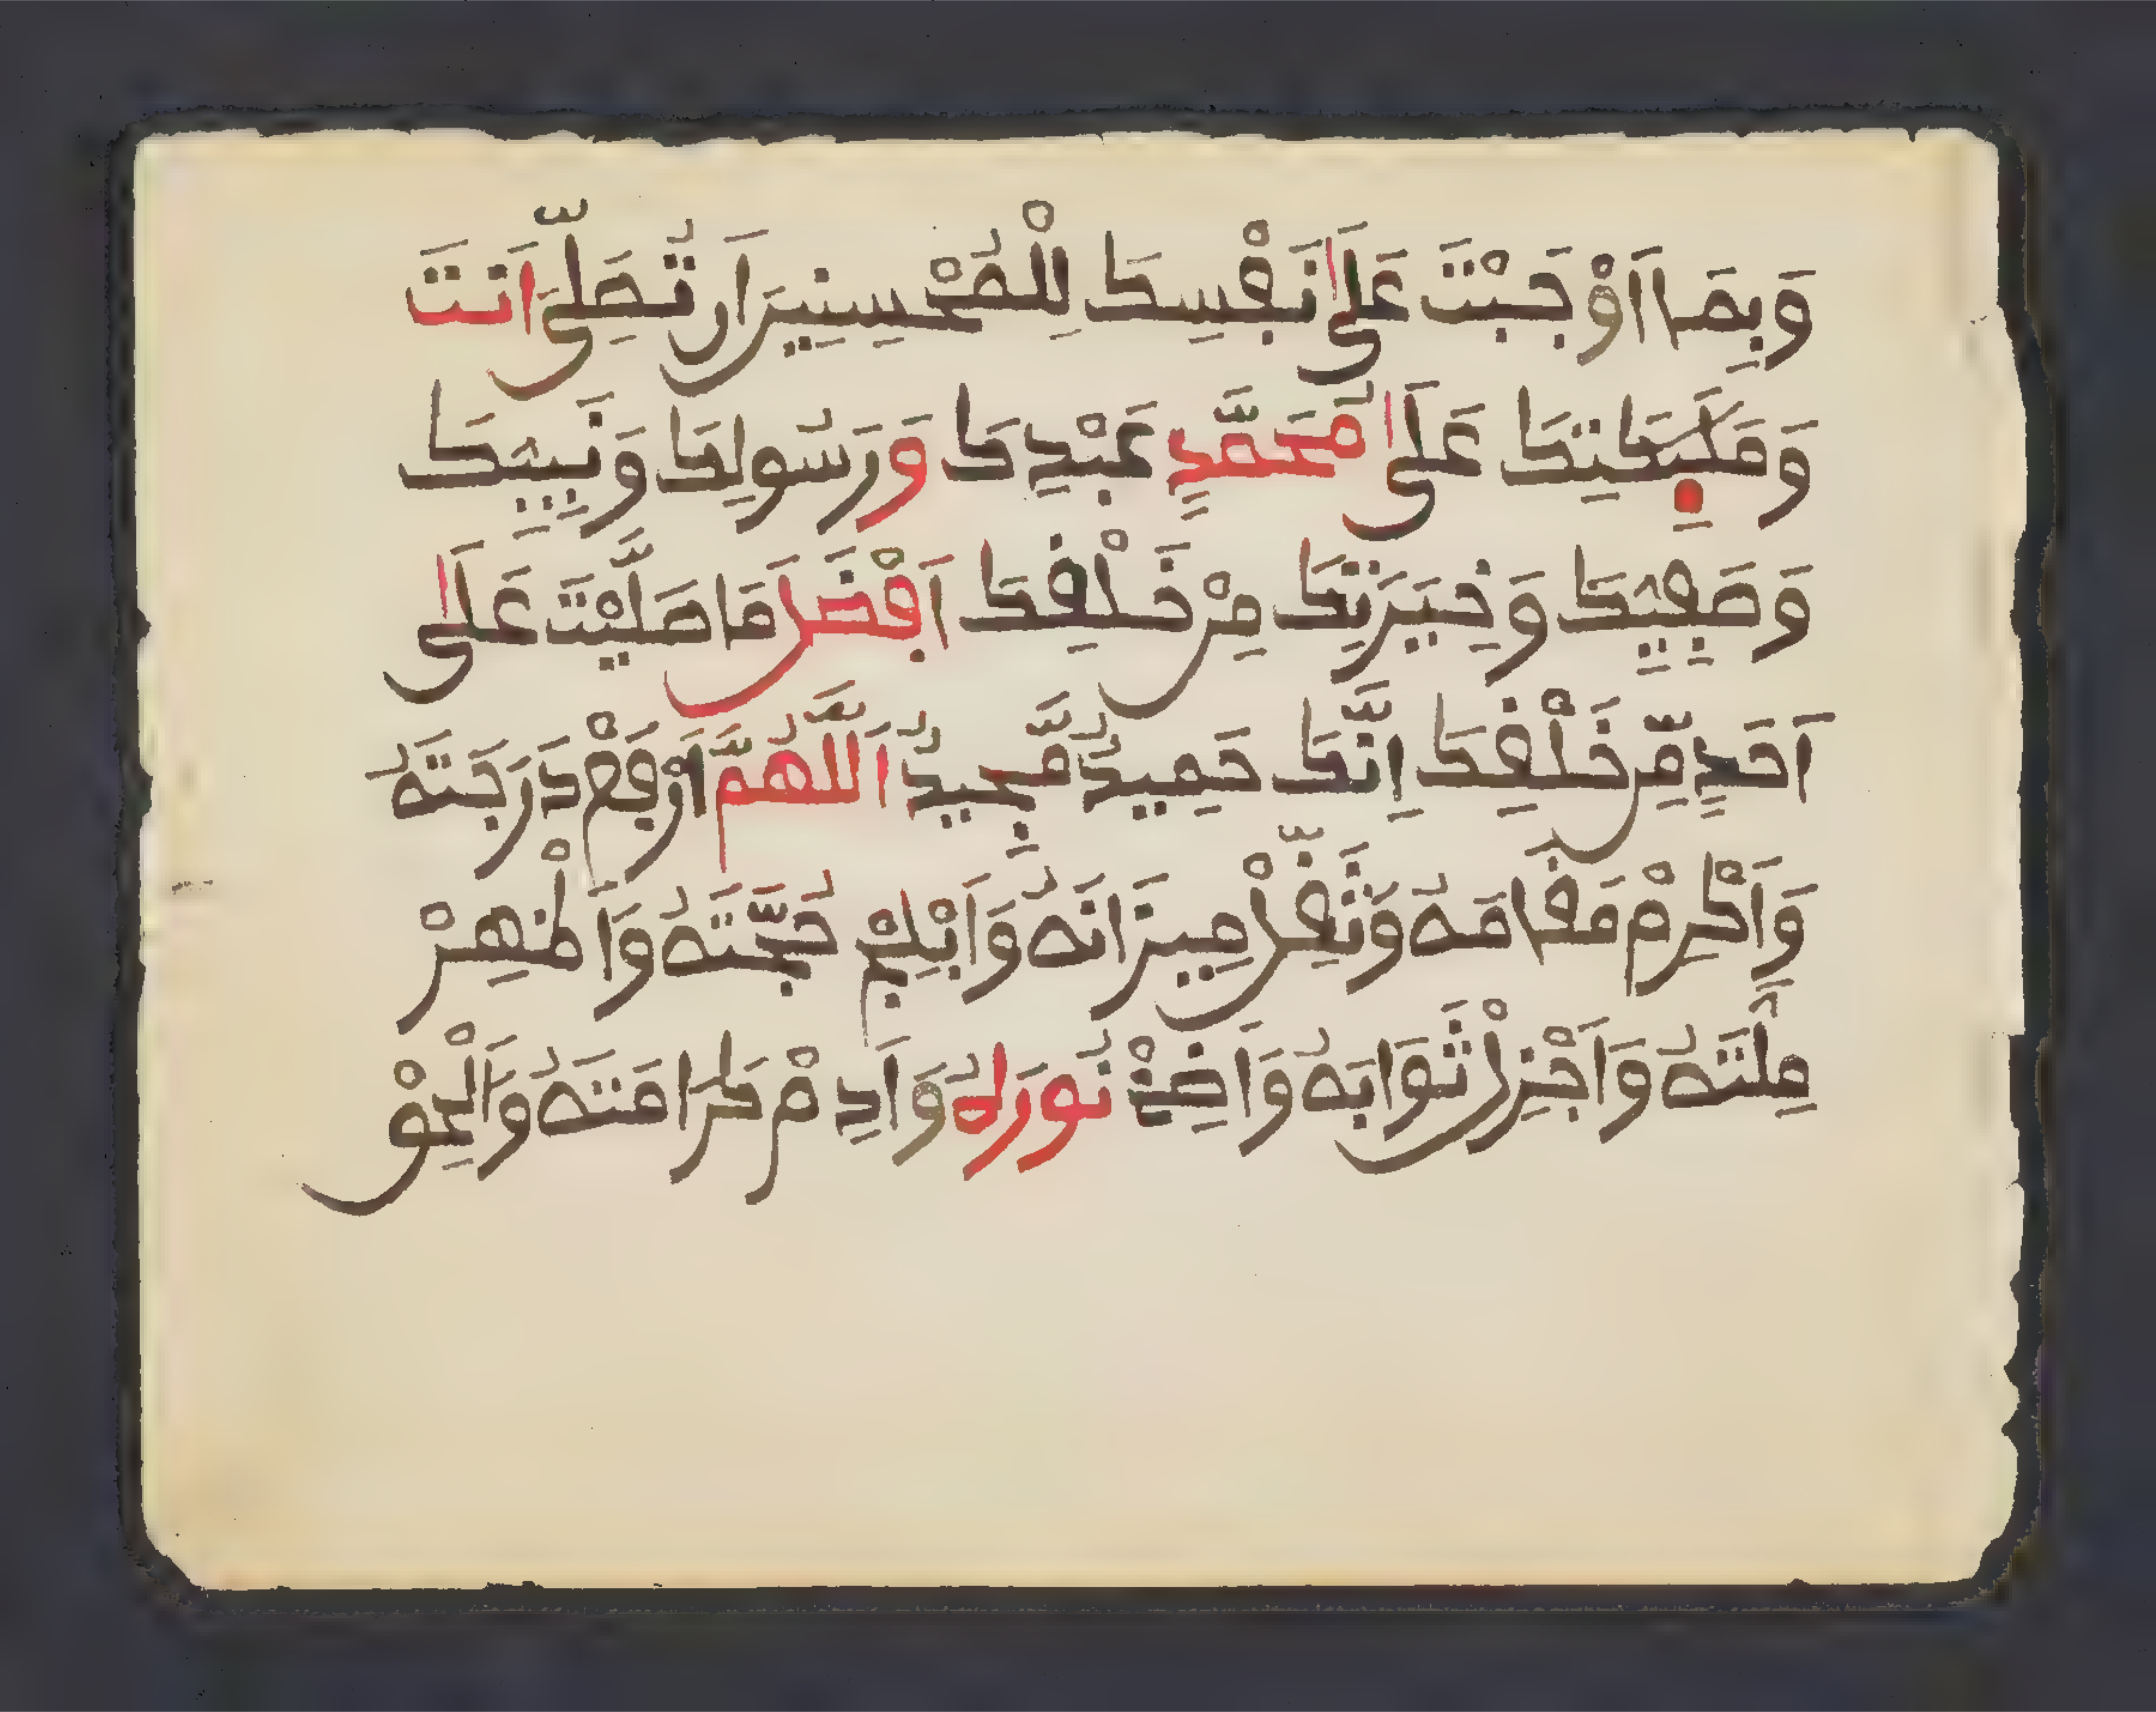 وَبِمَا اَوْجَبْتَ عَلَىٰ نَفْسِكَ لِلْمُحْسِنِينَ اَن تُصَلِّيَ اَنتَ
وَمَلَـٰٓئِكَتِكَ عَلَىٰ مُحَمَّدٍ عَبْدِكَ وَرَسُولِكَ وَنَبِيِّكَ
وَصَفِيِّكَ وَخِيَرَتِكَ مِنْ خَلْقِكَ اَفْضَلَ مَا صَلَّيْتَ عَلَىٰ
اَحَدٍ مِّنْ خَلْقِكَ اِنَّكَ حَمِيدٌ مَّجِيدٌ اَللَّهُمَّ اَرْفَعْ دَرَجَتَهُ
وَاَكْرِمْ مَقَامَهُ وَثَقِّلْ مِيزَانَهُ وَاَبْلِجْ حُجَّتَهُ وَاَظْهِرْ
مِلَّتَهُ وَاَجْزِلْ ثَوَابَهُ وَاَضِئْ نُورَهُ وَاَدِمْ كَرَامَتَهُ وَاَلْحِقْ